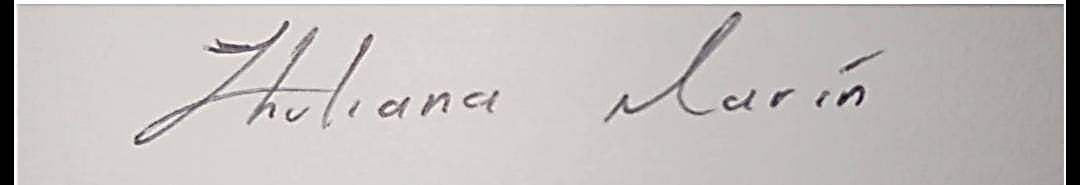 Jhuliana Marín